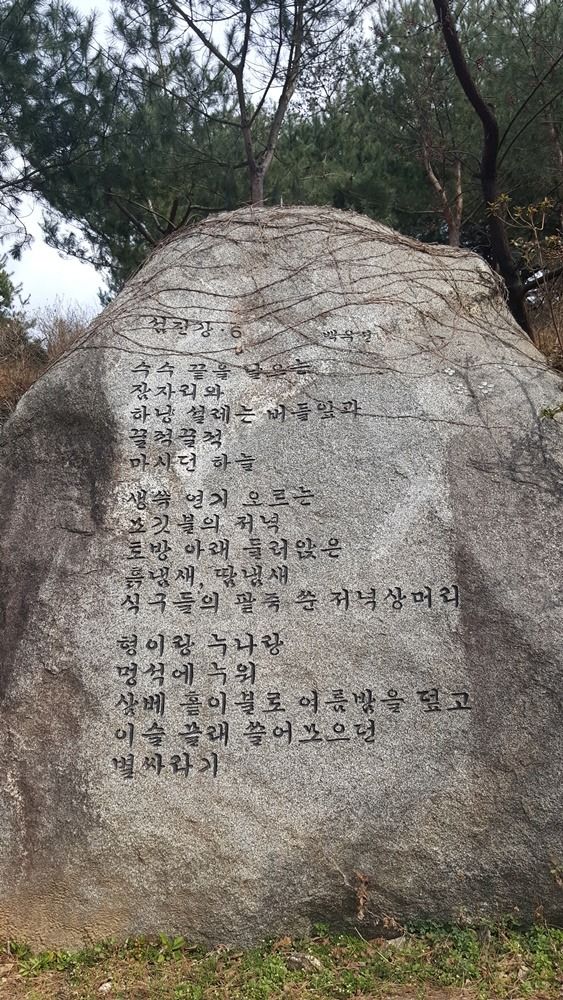 십질상·6 백우선
수수 끝을 날으는
잠자리와
하냥 설레는 버들잎과
끌컥끌컥
마시던 하늘
생쑥 연기 오르는
모깃불의 저녁
토방 아래 둘러앉은
흙냄새, 땀냄새
식구들의 팥죽 쑨 저녁상머리
형이랑 누나랑
멍석에 누워
삼베 홑이불로 여름밤을 덮고
이슬 끌래 쓸어모으던
별싸라기